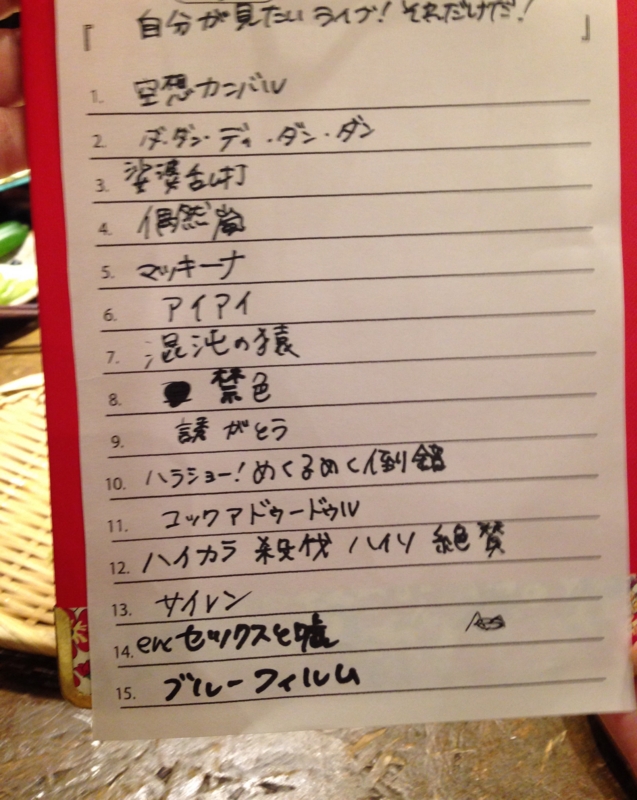 『 自分が見たいライブ! それだけだ! 』
1. 空想カンバル
2. ダ・ダン・ディ・ダン・ダン
3. 娑婆乱打
4. 偶然嵐
5. マッキーナ
6. アイアイ
7. 混沌の猿
8. 禁色
9. 誘がとう
10. ハラショー!めくるめく倒錯
11. コックアドゥードゥル
12. ハイカラ 殺伐 ハイソ 絶賛
13. サイレン
14. enc セックスと嘘
15. ブルーフィルム